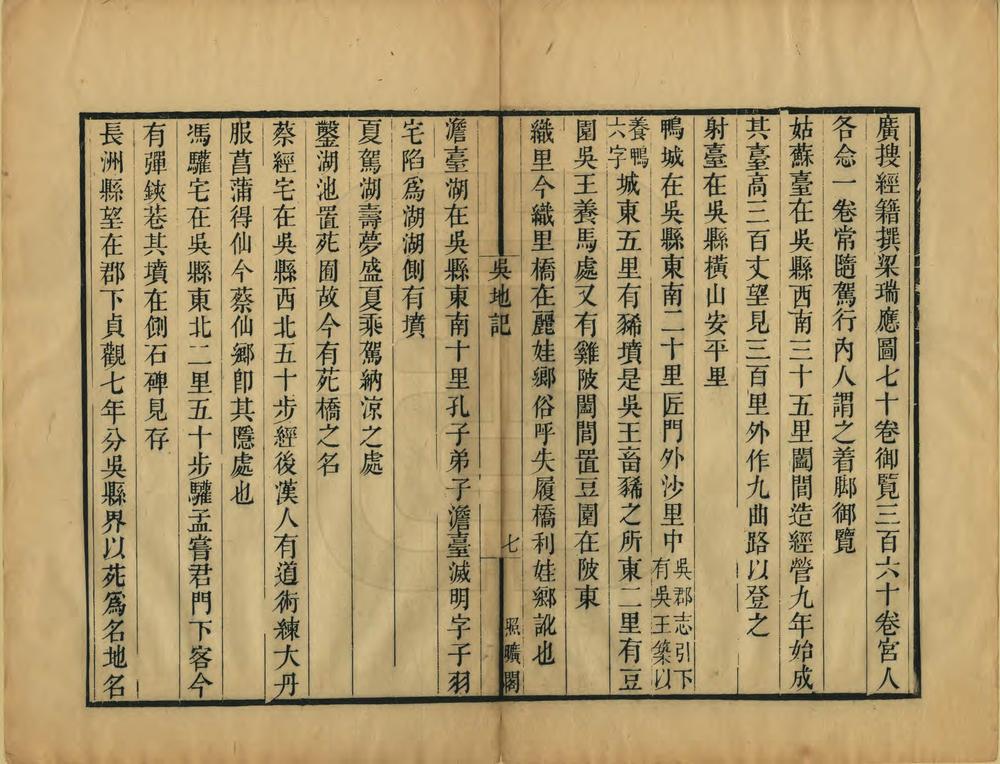 廣搜經籍撰梁瑞應圖七十卷御覽三百六十卷宮人
各念一卷常隨駕行內人謂之着脚御覽
姑蘇臺在吳縣西南三十五里闔閭造經營九年始成
其臺高三百丈望見三百里外作九曲路以登之
射臺在吳縣橫山安平里
鴨城在吳縣東南二十里匠門外沙里中吳郡志引下有吳王築以
養鴨六字城東五里有豨墳是吳王畜豨之所東二里有豆
園吳王養馬處又有雞陂闔閭置豆園在陂東
織里今織里橋在麗娃鄉俗呼失履橋利娃鄉訛也
吳地記
七
照曠閣
澹臺湖在吳縣東南十里孔子弟子澹臺滅明字子羽
宅陷爲湖湖側有墳
夏駕湖壽夢盛夏乘駕納涼之處
鑿湖池置苑囿故今有苑橋之名
蔡經宅在吳縣西北五十步經後漢人有道術練大丹
服菖蒲得仙今蔡仙鄉卽其隱處也
馮驩宅在吳縣東北二里五十步驩孟嘗君門下客今
有彈鋏巷其墳在側石碑見存
長洲縣望在郡下貞觀七年分吳縣界以苑爲名地名